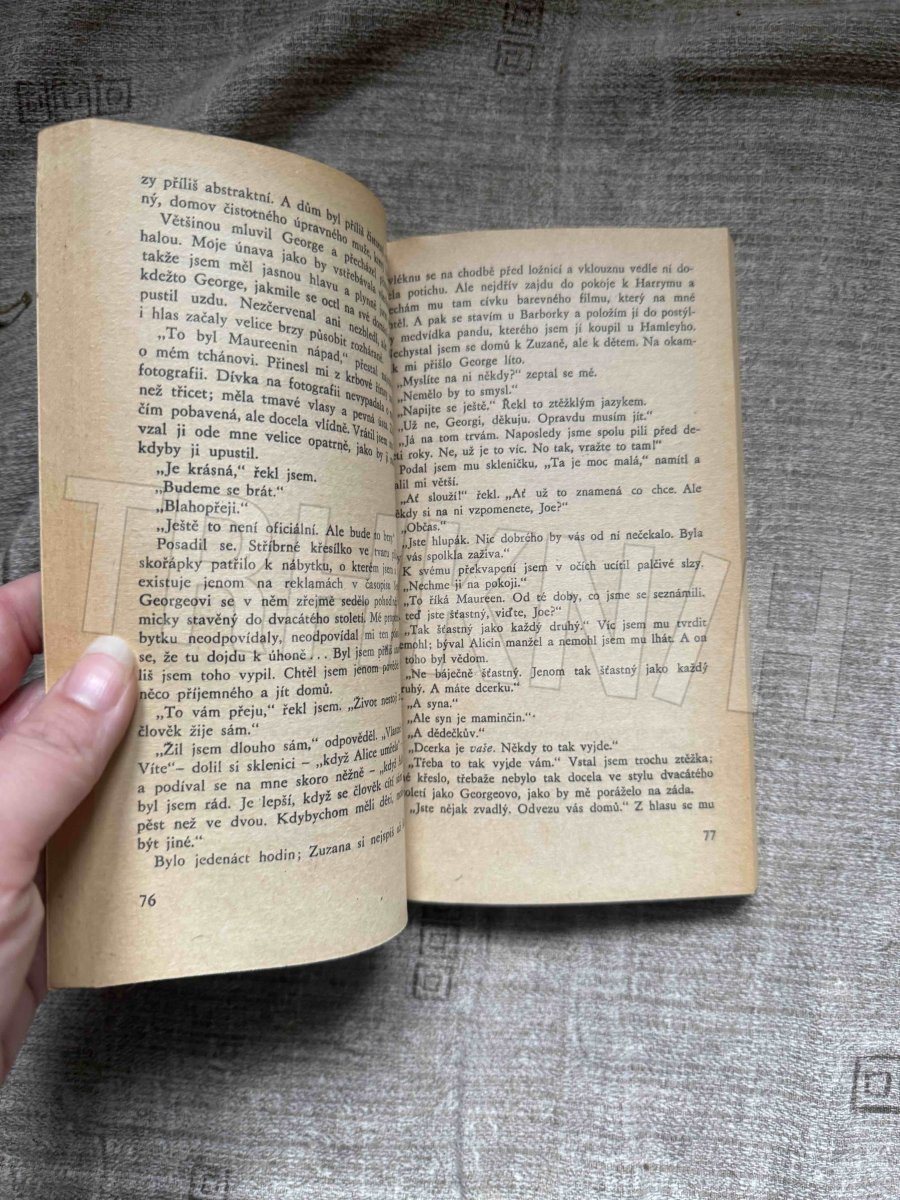 zy příliš abstraktní. A dům byl příliš
ný, domov čistotného úpravného muže,
Většinou mluvil George a přecházel
halou. Moje únava jako by vstřebávala
takže jsem měl jasnou hlavu a plynně
kdežto George, jakmile se ocl na své
pustil uzdu. Nezčervenal ani nezbledl,
i hlas začaly velice brzy působit rozháraně.
„To byl Maureenin nápad,“ přestal
o mém tchánovi. Přinesl mi z krbové
fotografii. Dívka na fotografii nevypadala
než třicet; měla tmavé vlasy a pevná ústa
čím pobavená, ale docela vlídně. Vrátil jsem
vzal ji ode mne velice opatrně, jako by
kdyby ji upustil.
„Je krásná,“ řekl jsem.
„Budeme se brát.“
„Blahopřeji.“
„Ještě to není oficiální. Ale bude to
Posadil se. Stříbrné křesílko ve tvaru
skořápky patřilo k nábytku, o kterém jsem
existuje jenom na reklamách v časopisu
Georgeovi se v něm zřejmě sedělo pohodlně
micky stavěný do dvacátého století. Mé
bytku neodpovídaly, neodpovídal mi ten
se, že tu dojdu k úhoně... Byl jsem
liš jsem toho vypil. Chtěl jsem jenom povědět
něco příjemného a jít domů.
„To vám přeju,“ řekl jsem. „Život
člověk žije sám.“
„Žil jsem dlouho sám,“ odpověděl.
Víte“– dolil si sklenici – „když Alice umřela“
a podíval se na mne skoro něžně – „když
byl jsem rád. Je lepší, když se člověk cítí
pěst než ve dvou. Kdybychom měli děti,
být jiné.“
Bylo jedenáct hodin; Zuzana si nejspíš
76
vléknu se na chodbě před ložnicí a vklouznu vedle ní do-
ela potichu. Ale nejdřív zajdu do pokoje k Harrymu a
echám mu tam cívku barevného filmu, který na mně
těl. A pak se stavím u Barborky a položím jí do postýl-
medvídka pandu, kterého jsem jí koupil u Hamleyho.
echystal jsem se domů k Zuzaně, ale k dětem. Na okam-
k mi přišlo George líto.
„Myslíte na ni někdy?“ zeptal se mě.
„Nemělo by to smysl.“
„Napijte se ještě.“ Řekl to ztěžklým jazykem.
„Už ne, Georgi, děkuju. Opravdu musím jít.“
„Já na tom trvám. Naposledy jsme spolu pili před de-
ti roky. Ne, už je to víc. No tak, vražte to tam!“
Podal jsem mu skleničku, „Ta je moc malá,“ namítl a
alil mi větší.
„Ať slouží!“ řekl. „Ať už to znamená co chce. Ale
ěkdy si na ni vzpomenete, Joe?“
„Občas.“
„Jste hlupák. Nic dobrého by vás od ní nečekalo. Byla
vás spolkla zaživa.“
K svému překvapení jsem v očích ucítil palčivé slzy.
„Nechme ji na pokoji.“
„To říká Maureen. Od té doby, co jsme se seznámili.
teď jste šťastný, viďte, Joe?“
„Tak šťastný jako každý druhý.“ Víc jsem mu tvrdit
emohl; býval Alicin manžel a nemohl jsem mu lhát. A on
toho byl vědom.
„Ne báječně šťastný. Jenom tak šťastný jako každý
ruhý. A máte dcerku.“
„A syna.“
„Ale syn je maminčin.“
„A dědečkův.“
„Dcerka je vaše. Někdy to tak vyjde.“
„Třeba to tak vyjde vám.“ Vstal jsem trochu ztěžka;
é křeslo, třebaže nebylo tak docela ve stylu dvacátého
oletí jako Georgeovo, jako by mě poráželo na záda.
„Jste nějak zvadlý. Odvezu vás domů.“ Z hlasu se mu
77